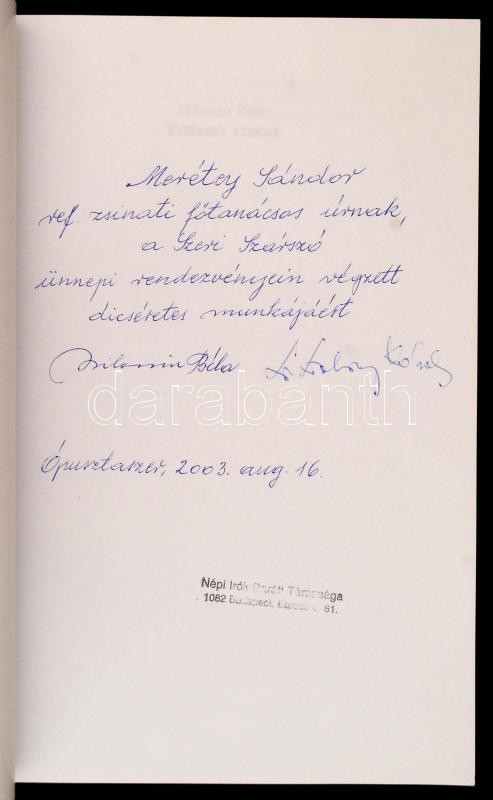 Merétey Sándor
ref. zsinati főtanácsos úrnak,
a Szeri Szárszó
ünnepi rendezvényein végzett
dicséretes munkájáért
Béla
darabanth
Ópusztaszer, 2003. aug. 16.
Népi Írók Baráti Társasága
1082 Budapest, 61.